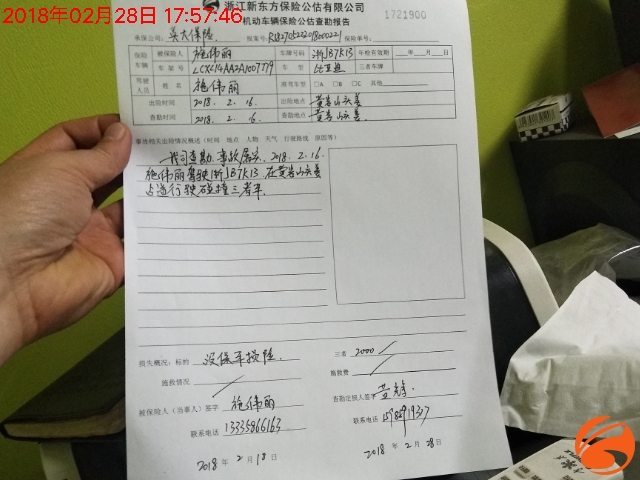 2018年02月28日 17:57:46
浙江新东方保险公估有限公司
机动车辆保险公估查勘报告
1721900
承保公司: 英大保险. 报案号: 保险单号:
保险车辆 被保险人 施伟丽 车牌号码 浙JB7K13 年检有效期 年 月 日
车架号 车型 比亚迪 三者车牌
驾驶人员 姓名 施伟丽 准驾车型 □A □B □C 其他
出险时间 2018. 2. 16. 出险地点 黄岩山头姜
查勘时间 2018. 2. 16. 查勘地点 黄岩山头姜.
事故相关出险情况概述(时间 地点 人物 天气 行驶路线 原因等)
我司查勘. 事故属实. 2018. 2. 16
施伟丽驾驶浙JB7K13 在黄岩山头姜
占道行驶碰撞三者车.
损失概况: 标的 没保车损险. 三者 2000
施救情况 施救费
被保险人(当事人)签字 施伟丽 查勘定损人签字
联系电话 13335866163 联系电话
2018年 2月 18日 2018年 2月 28日